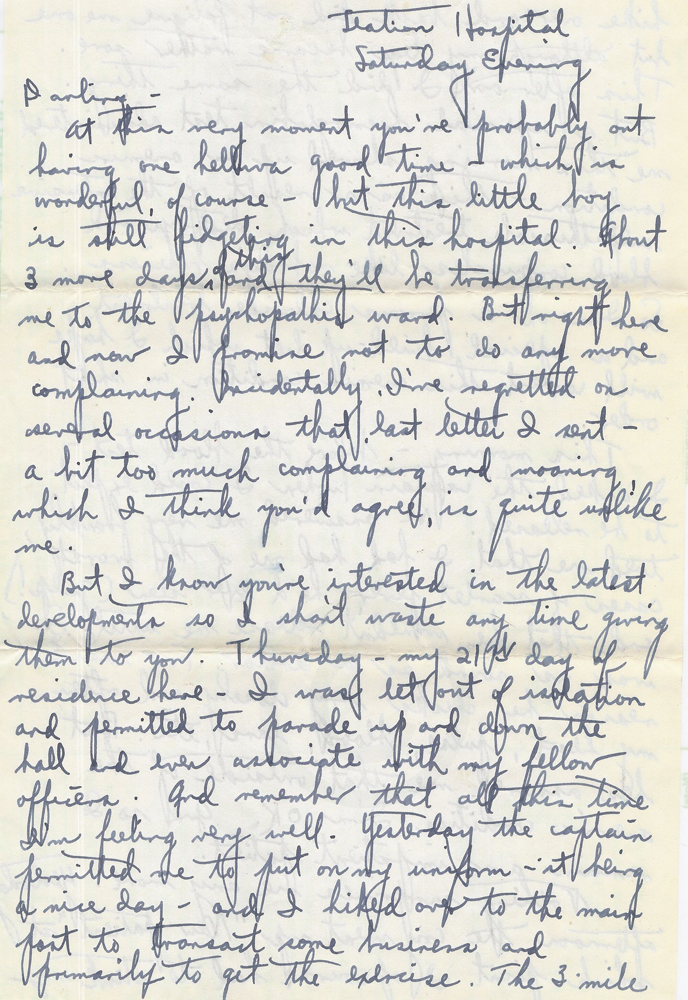 Station Hospital
Saturday Evening
Darling -
At this very moment you've probably out
having one helluva good time - which is
wonderful, of course - but this little boy
is still fidgeting in this hospital. About
3 more days of this and they'll be transferring
me to the psychopathic ward. But right here
and now I promise not to do any more
complaining. Incidentally, I've regretted on
several occasions that last letter I sent -
a bit too much complaining and moaning,
which I think you'd agree, is quite unlike
me.
But I know you're interested in the latest
developments so I shan't waste any time giving
them to you. Thursday - my 21st day of
residence here - I was let out of isolation
and permitted to parade up and down the
hall and even associate with my fellow
officers. And remember that all this time
I'm feeling very well. Yesterday the captain
permitted me to put on my uniform - it being
a nice day - and I hiked over to the main
post to transact some business and
primarily to get the exercise. The 3 mile